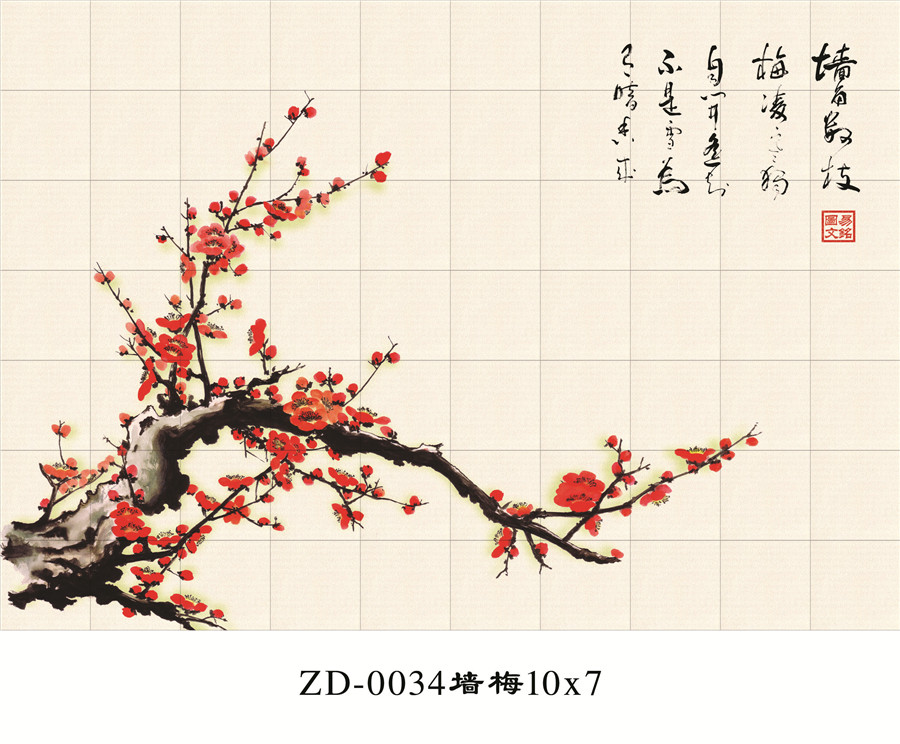 墙角数枝
梅凌寒独
自开遥知
不是雪為
有暗香来
易銘
圖文
ZD-0034墙梅10x7